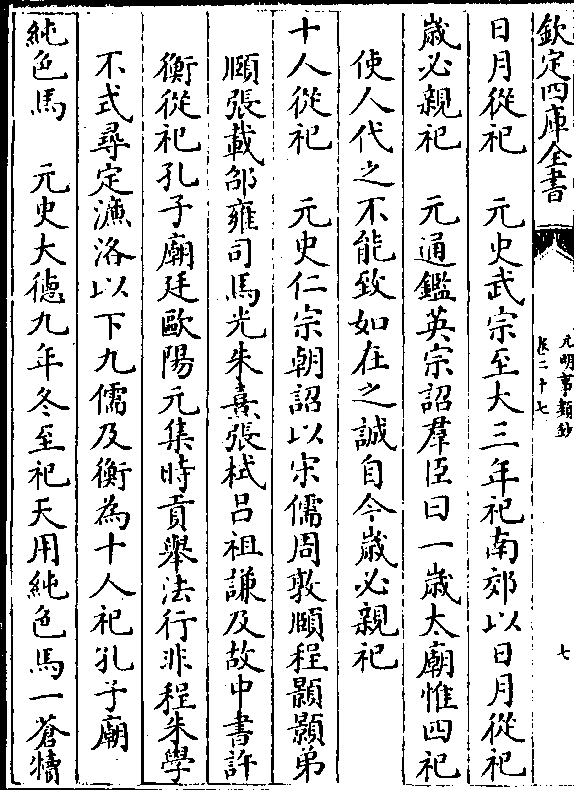 欽定四庫全書
元明事類鈔
卷二十七
七
日月從祀　元史武宗至大三年祀南郊以日月從祀
歲必親祀　元通鑑英宗詔羣臣曰一歲太廟惟四祀
使人代之不能致如在之誠自今歲必親祀
十人從祀　元史仁宗朝詔以宋儒周敦頤程顥顥弟
頤張載邵雍司馬光朱熹張栻呂祖謙及故中書許
衡從祀孔子廟廷歐陽元集時貢舉法行非程朱學
不式尋定濂洛以下九儒及衡為十人祀孔子廟
純色馬　元史大德九年冬至祀天用純色馬一蒼犢